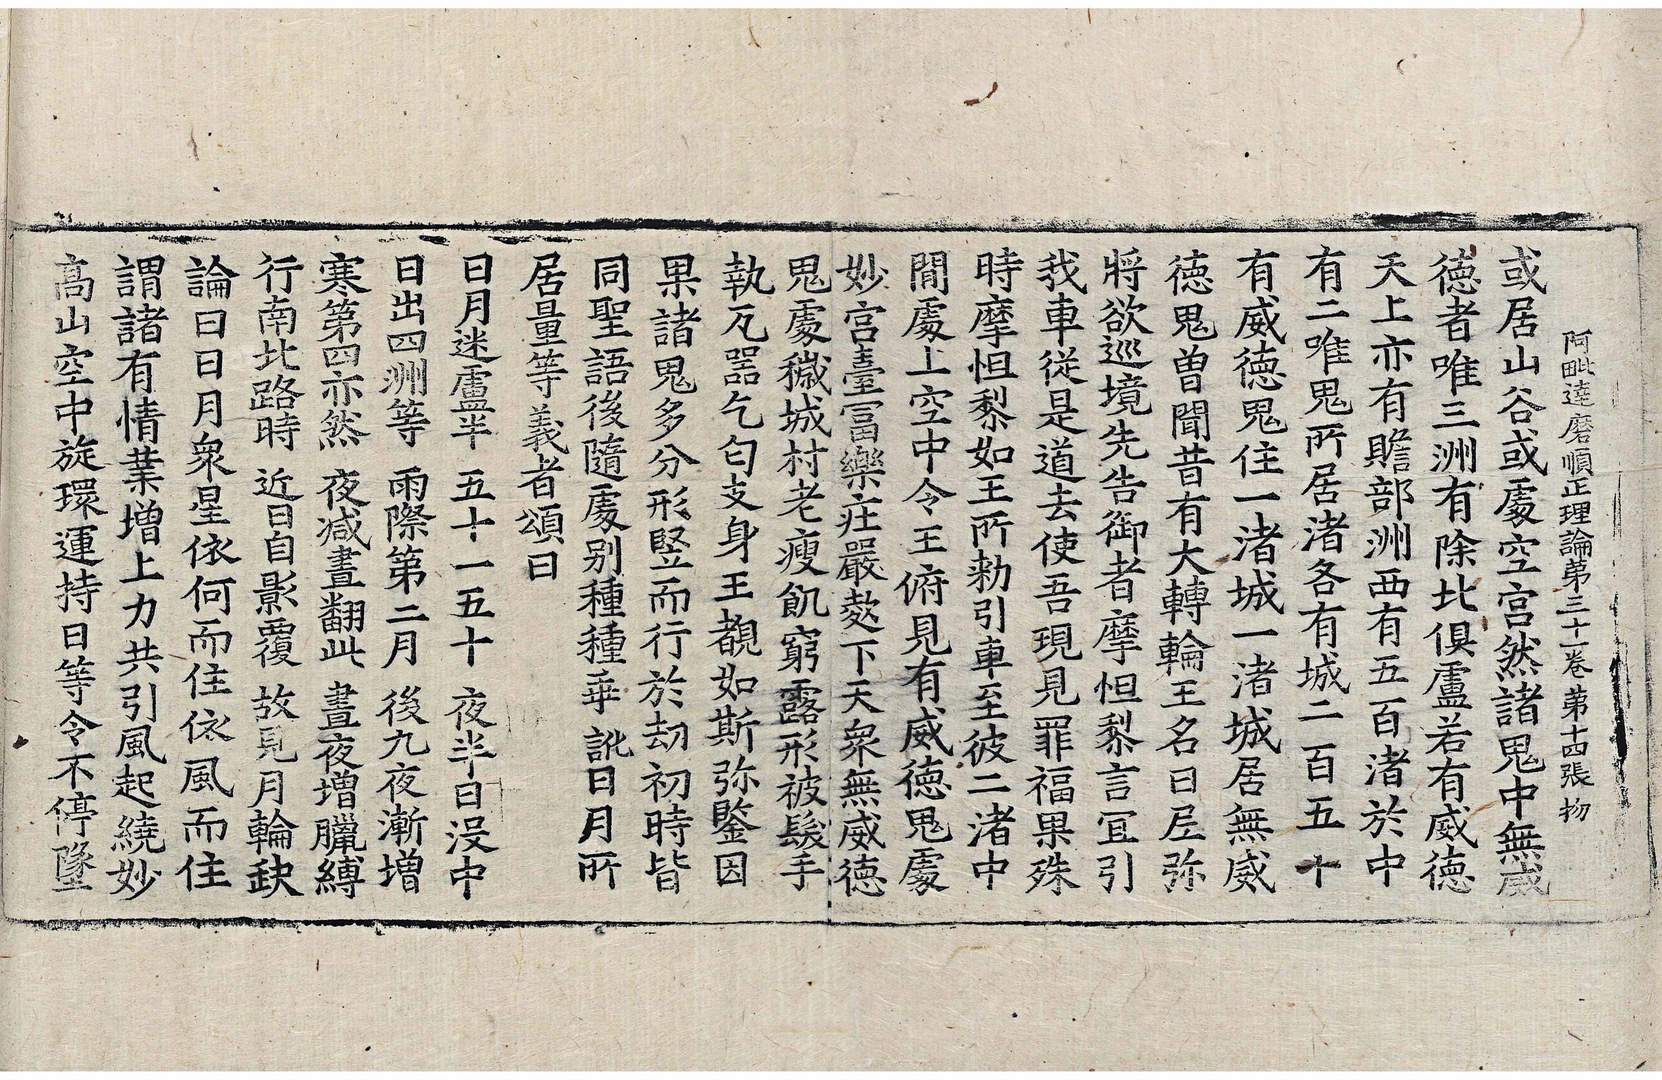 阿毗達磨順正理論第三十一卷 第十四張 物
或居山谷或處空宮然諸鬼中無威
德者唯三洲有除北俱盧若有威德
天上亦有贍部洲西有五百渚於中
有二唯鬼所居渚各有城二百五十
有威德鬼住一渚城一渚城居無威
德鬼曾聞昔有大轉輪王名曰尼弥
將欲巡境先告御者摩怛黎言宜引
我車從是道去使吾現見罪福果殊
時摩怛黎如王所勑引車至彼二渚中
閒處上空中令王俯見有威德鬼處
妙宮臺冨樂庄嚴㪍下天衆無威德
鬼處穢城村老瘦飢窮露形被髮手
執瓦器乞匃支身王覩如斯弥鑒因
果諸鬼多分形竪而行於劫初時皆
同聖語後隨處别種種乖訛日月所
居量等義者頌曰
日月迷盧半 五十一五十 夜半日没中
日出四洲等 雨際第二月 後九夜漸增
寒第四亦然 夜减晝翻此 晝夜增臘縛
行南北路時 近日自影覆 故見月輪缺
論曰日月衆星依何而住依風而住
謂諸有情業增上力共引風起繞妙
高山空中旋環運持日等令不停墜